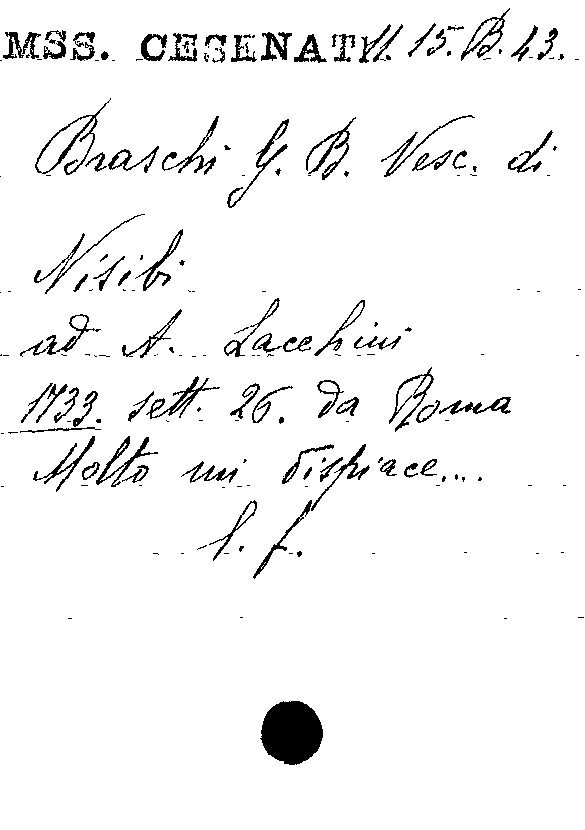 MSS. CESENATI. 15. B. 43.
Braschi G. B. Vesc. di
Nisibi
ad A. Lacchini
1733. sett. 26. da Roma
Molto mi dispiace...
l. f.